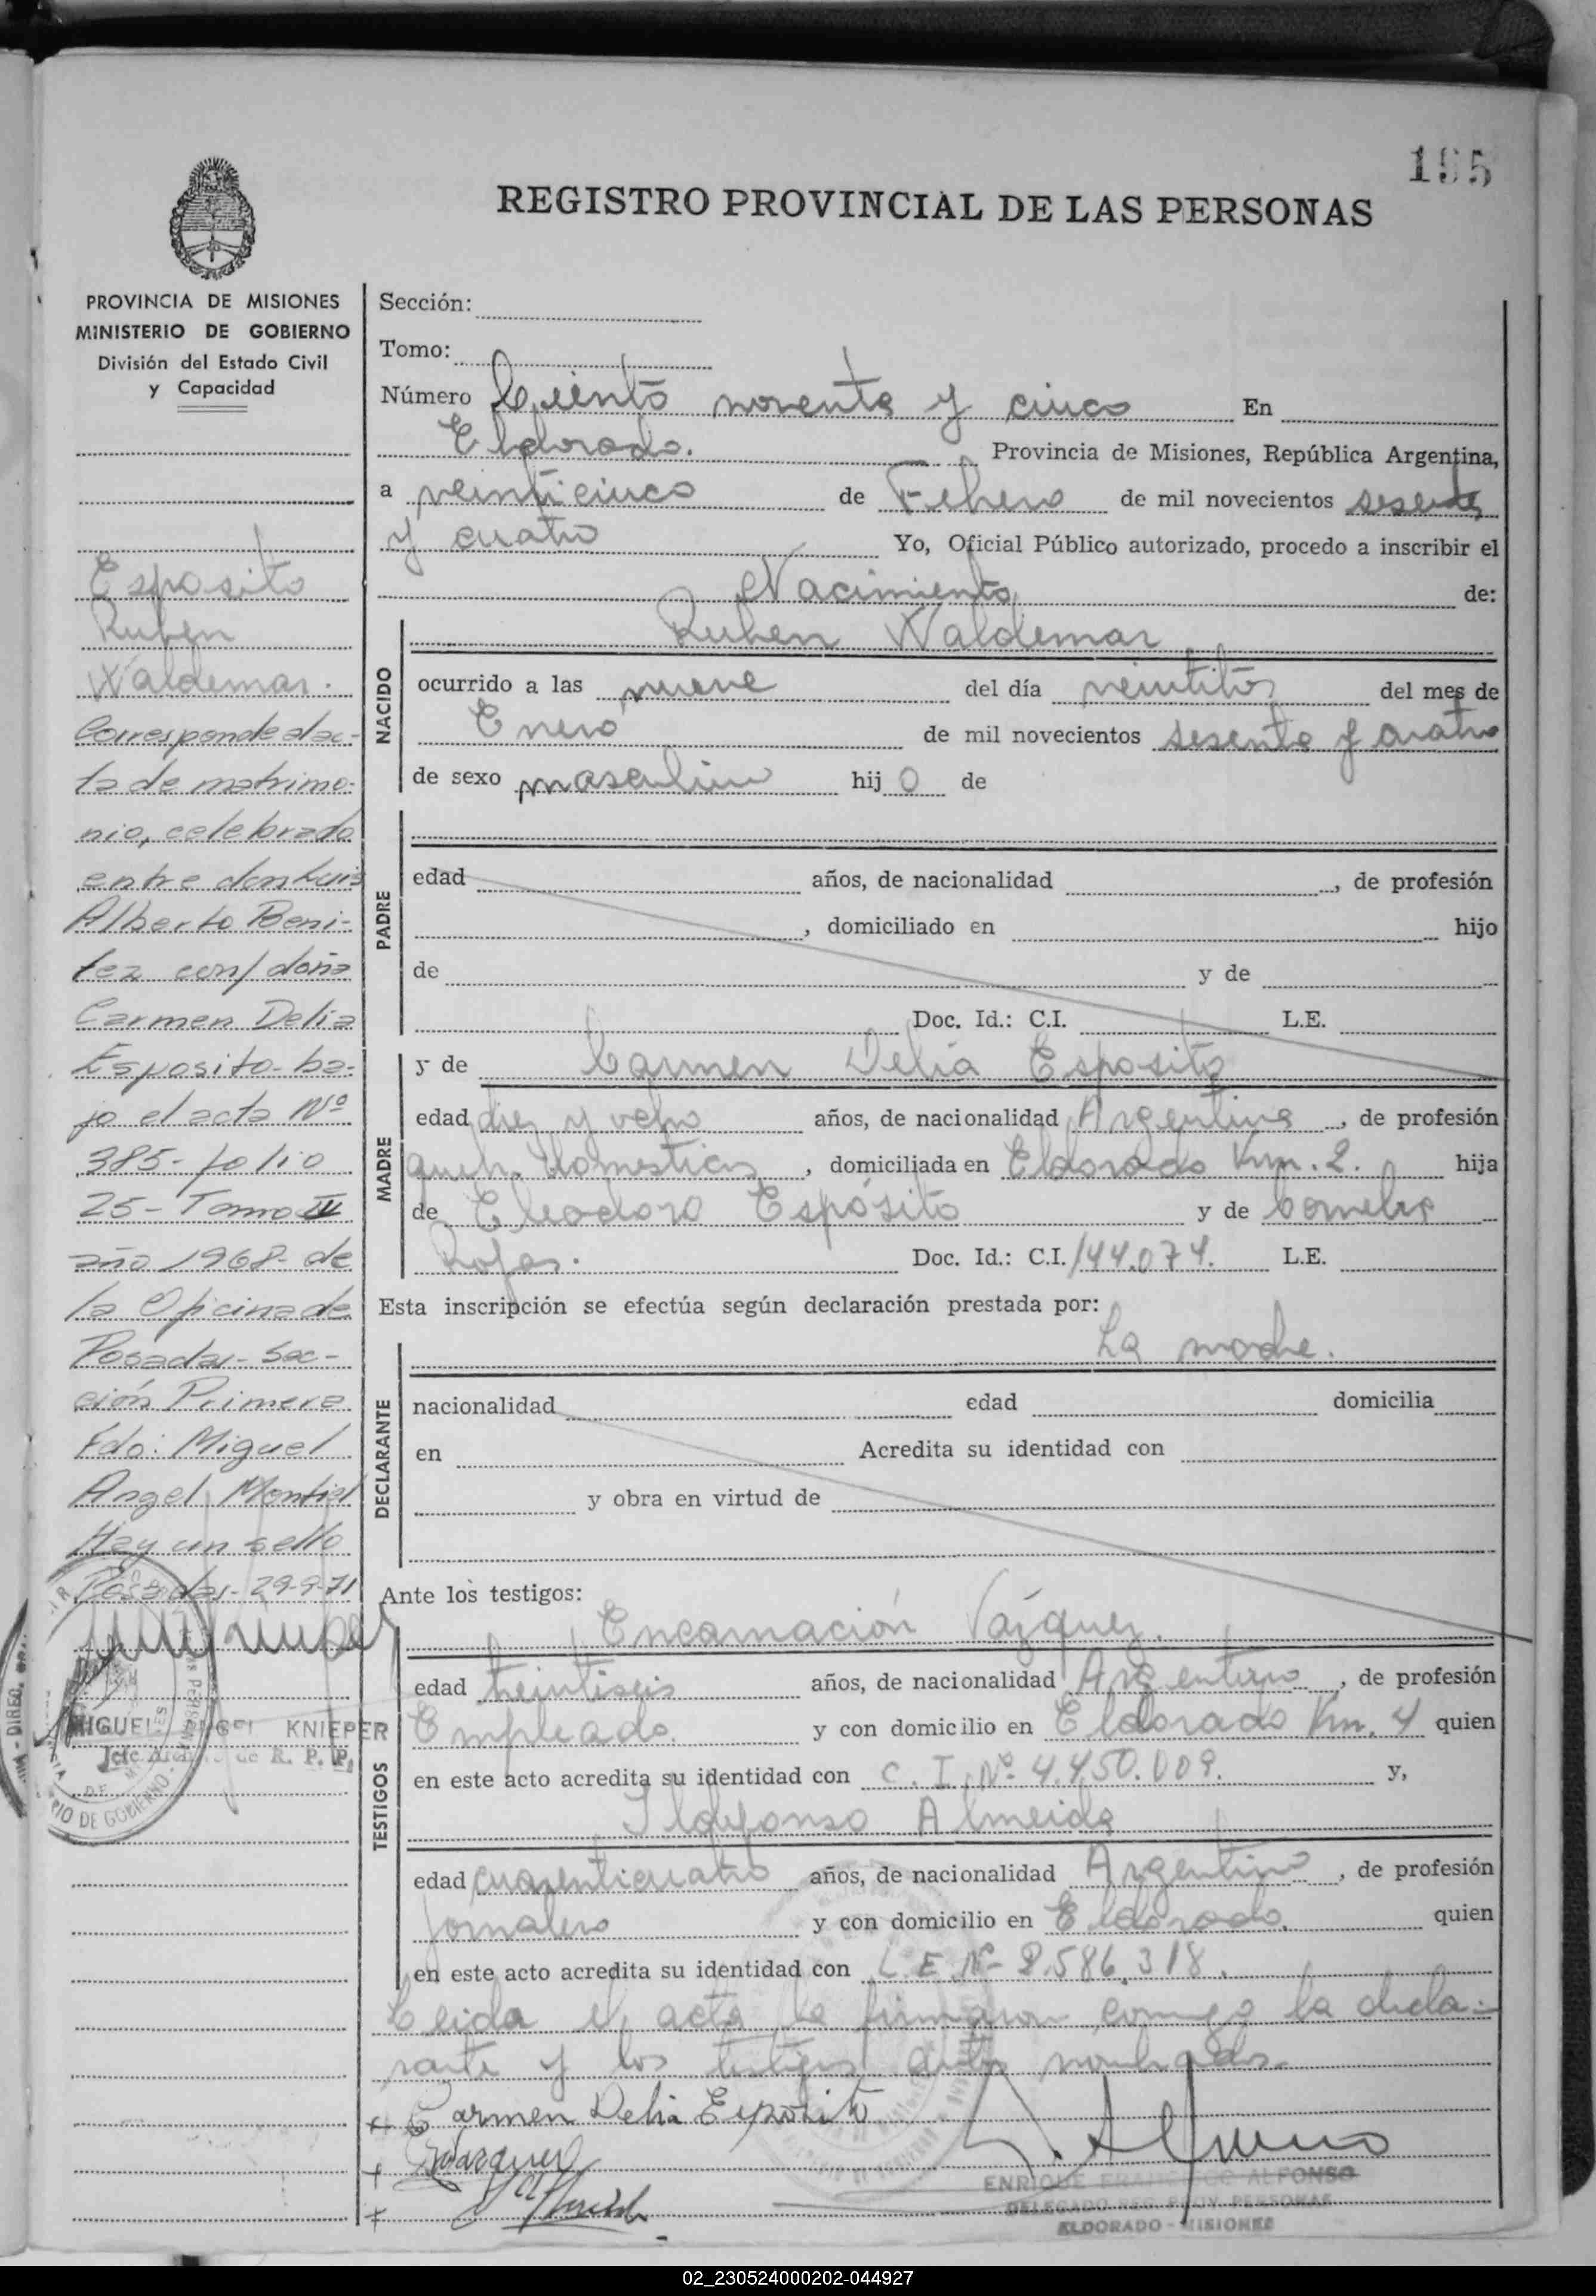 195
REGISTRO PROVINCIAL DE LAS PERSONAS
PROVINCIA DE MISIONES
MINISTERIO DE GOBIERNO
División del Estado Civil
y Capacidad
Esposito
Ruben
Waldemar.
Corresponde al ac-
ta de matrimo-
nio, celebrado
entre don Luis
Alberto Beni-
tez con/ doña
Carmen Delia
Esposito- ba-
jo el acta Nº
385- folio
25- Tomo IV
año 1968- de
la Oficina de
Posadas- Sec-
ción Primera
Fdo: Miguel
Angel Montiel
Hay un sello
Posadas- 29-9-71
MIGUEL ANGEL KNIEPER
Jefe Archivo de R. P. P.
Sección:
Tomo:
Número Ciento noventa y cinco En
Eldorado. Provincia de Misiones, República Argentina,
a veinticinco de Febrero de mil novecientos sesenta
y cuatro Yo, Oficial Público autorizado, procedo a inscribir el
Nacimiento de:
Ruben Waldemar
NACIDO
ocurrido a las nueve del día del mes de
Enero de mil novecientos sesenta y cuatro
de sexo masculino hij o de
PADRE
edad años, de nacionalidad , de profesión
, domiciliado en hijo
de y de
Doc. Id.: C.I. L.E.
y de Carmen Delia Esposito
MADRE
edad diez y ocho años, de nacionalidad Argentina , de profesión
queh. Domesticos , domiciliada en Eldorado Km. 2. hija
de Eleodoro Espósito y de
Rojas. Doc. Id.: C.I. 144.074. L.E.
Esta inscripción se efectúa según declaración prestada por:
La madre.
DECLARANTE
nacionalidad edad domicilia
en Acredita su identidad con
y obra en virtud de
Ante los testigos:
Encarnación Vázquez.
TESTIGOS
edad treintiseis años, de nacionalidad Argentino , de profesión
Empleado. y con domicilio en Eldorado Km. 4 quien
en este acto acredita su identidad con C. I. Nº 4.450.009. y,
Ildefonso Almeida
edad cuarenticuatro años, de nacionalidad Argentino , de profesión
jornalero y con domicilio en Eldorado. quien
en este acto acredita su identidad con L. E. Nº- 2.586.318.
Leida el acta la firmaron comigo la decla-
rante y los testigos antes nombrados.
Carmen Delia Esposito
EVázquez
ENRIQUE FRANCISCO ALFONSO
DELEGADO REG. PROV. PERSONAS
ELDORADO - MISIONES
02_230524000202-044927